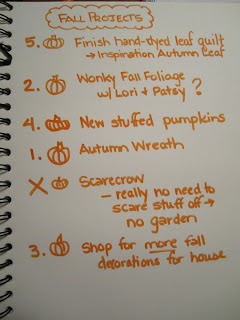 FALL PROJECTS
5. Finish hand-dyed leaf quilt
→ Inspiration Autumn Leaf
2. Wonky Fall Foliage
w/ Lori + Patsy ?
4. New stuffed pumpkins
1. Autumn Wreath
X Scarecrow
- really no need to
scare stuff off →
no garden
3. Shop for more fall
decorations for house